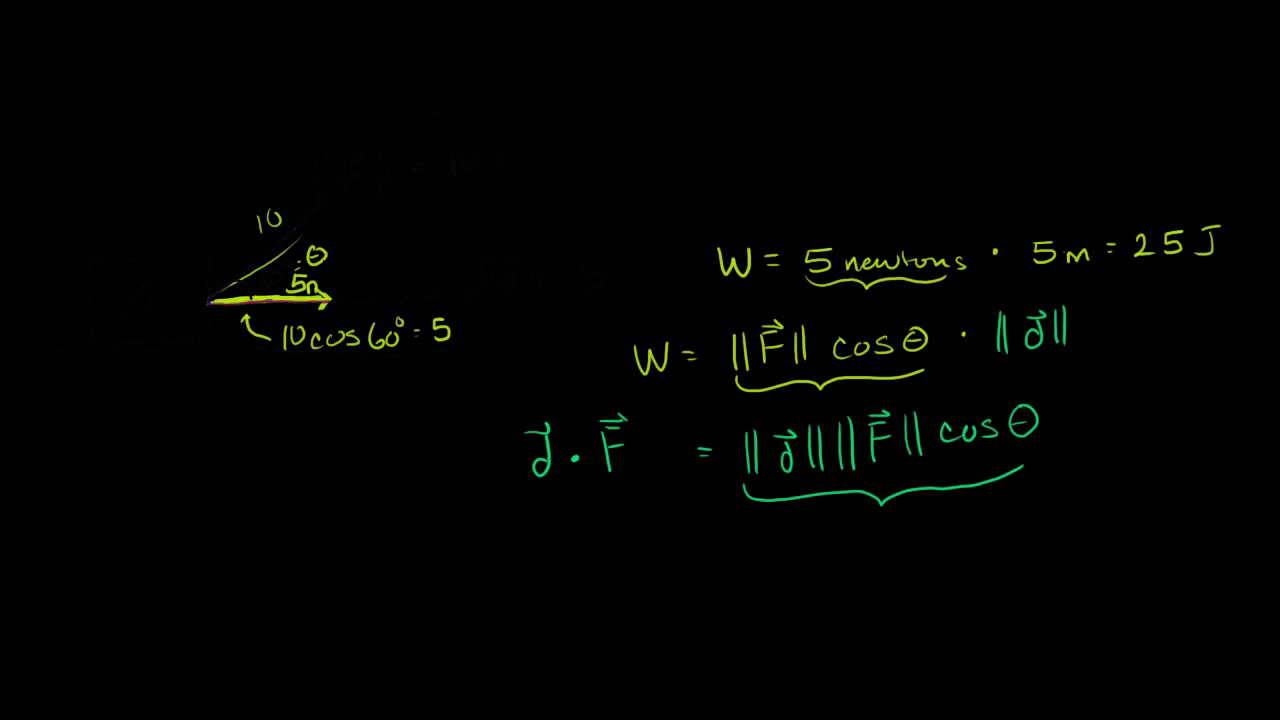 10
θ
5n
10cos60° = 5
W = 5 newtons · 5m = 25 J
W = ||F⃗|| cosθ · ||d⃗||
d⃗ · F⃗ = ||d⃗|| ||F⃗|| cosθ